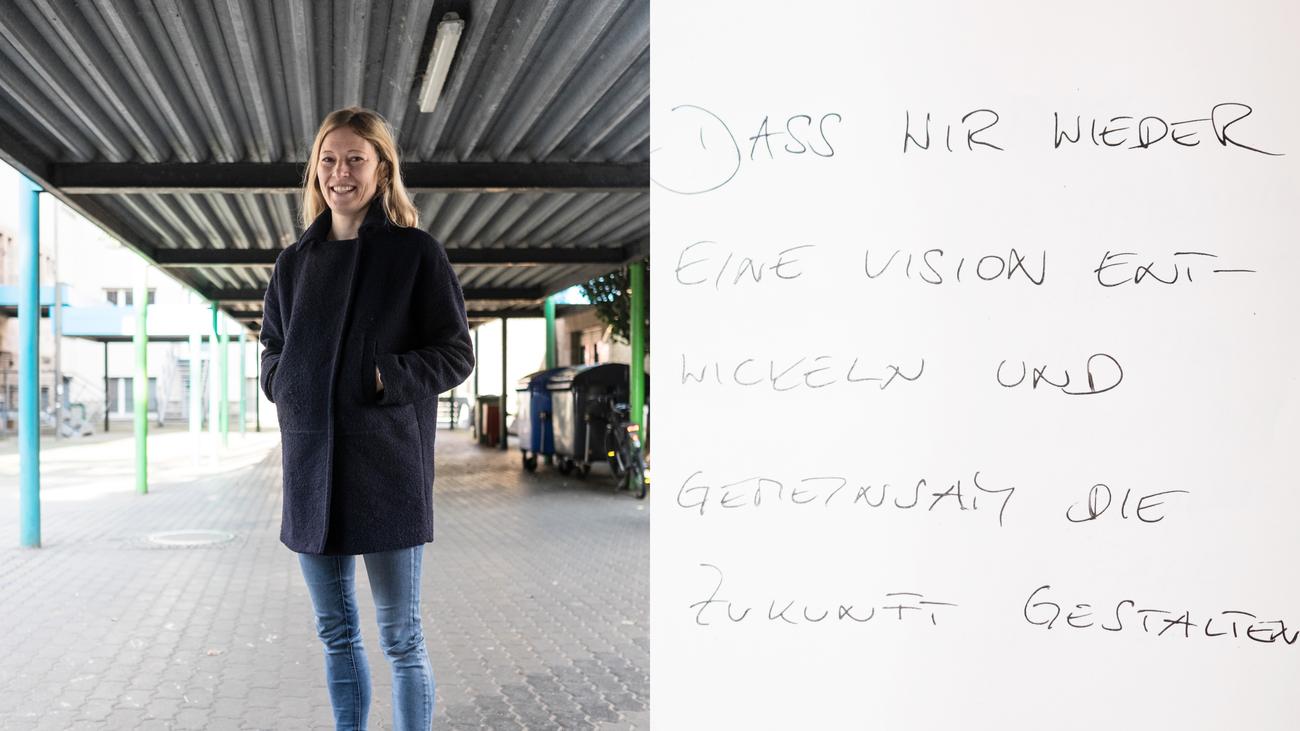 DASS WIR WIEDER
EINE VISION ENT-
WICKELN UND
GEMEINSAM DIE
ZUKUNFT GESTALTEN